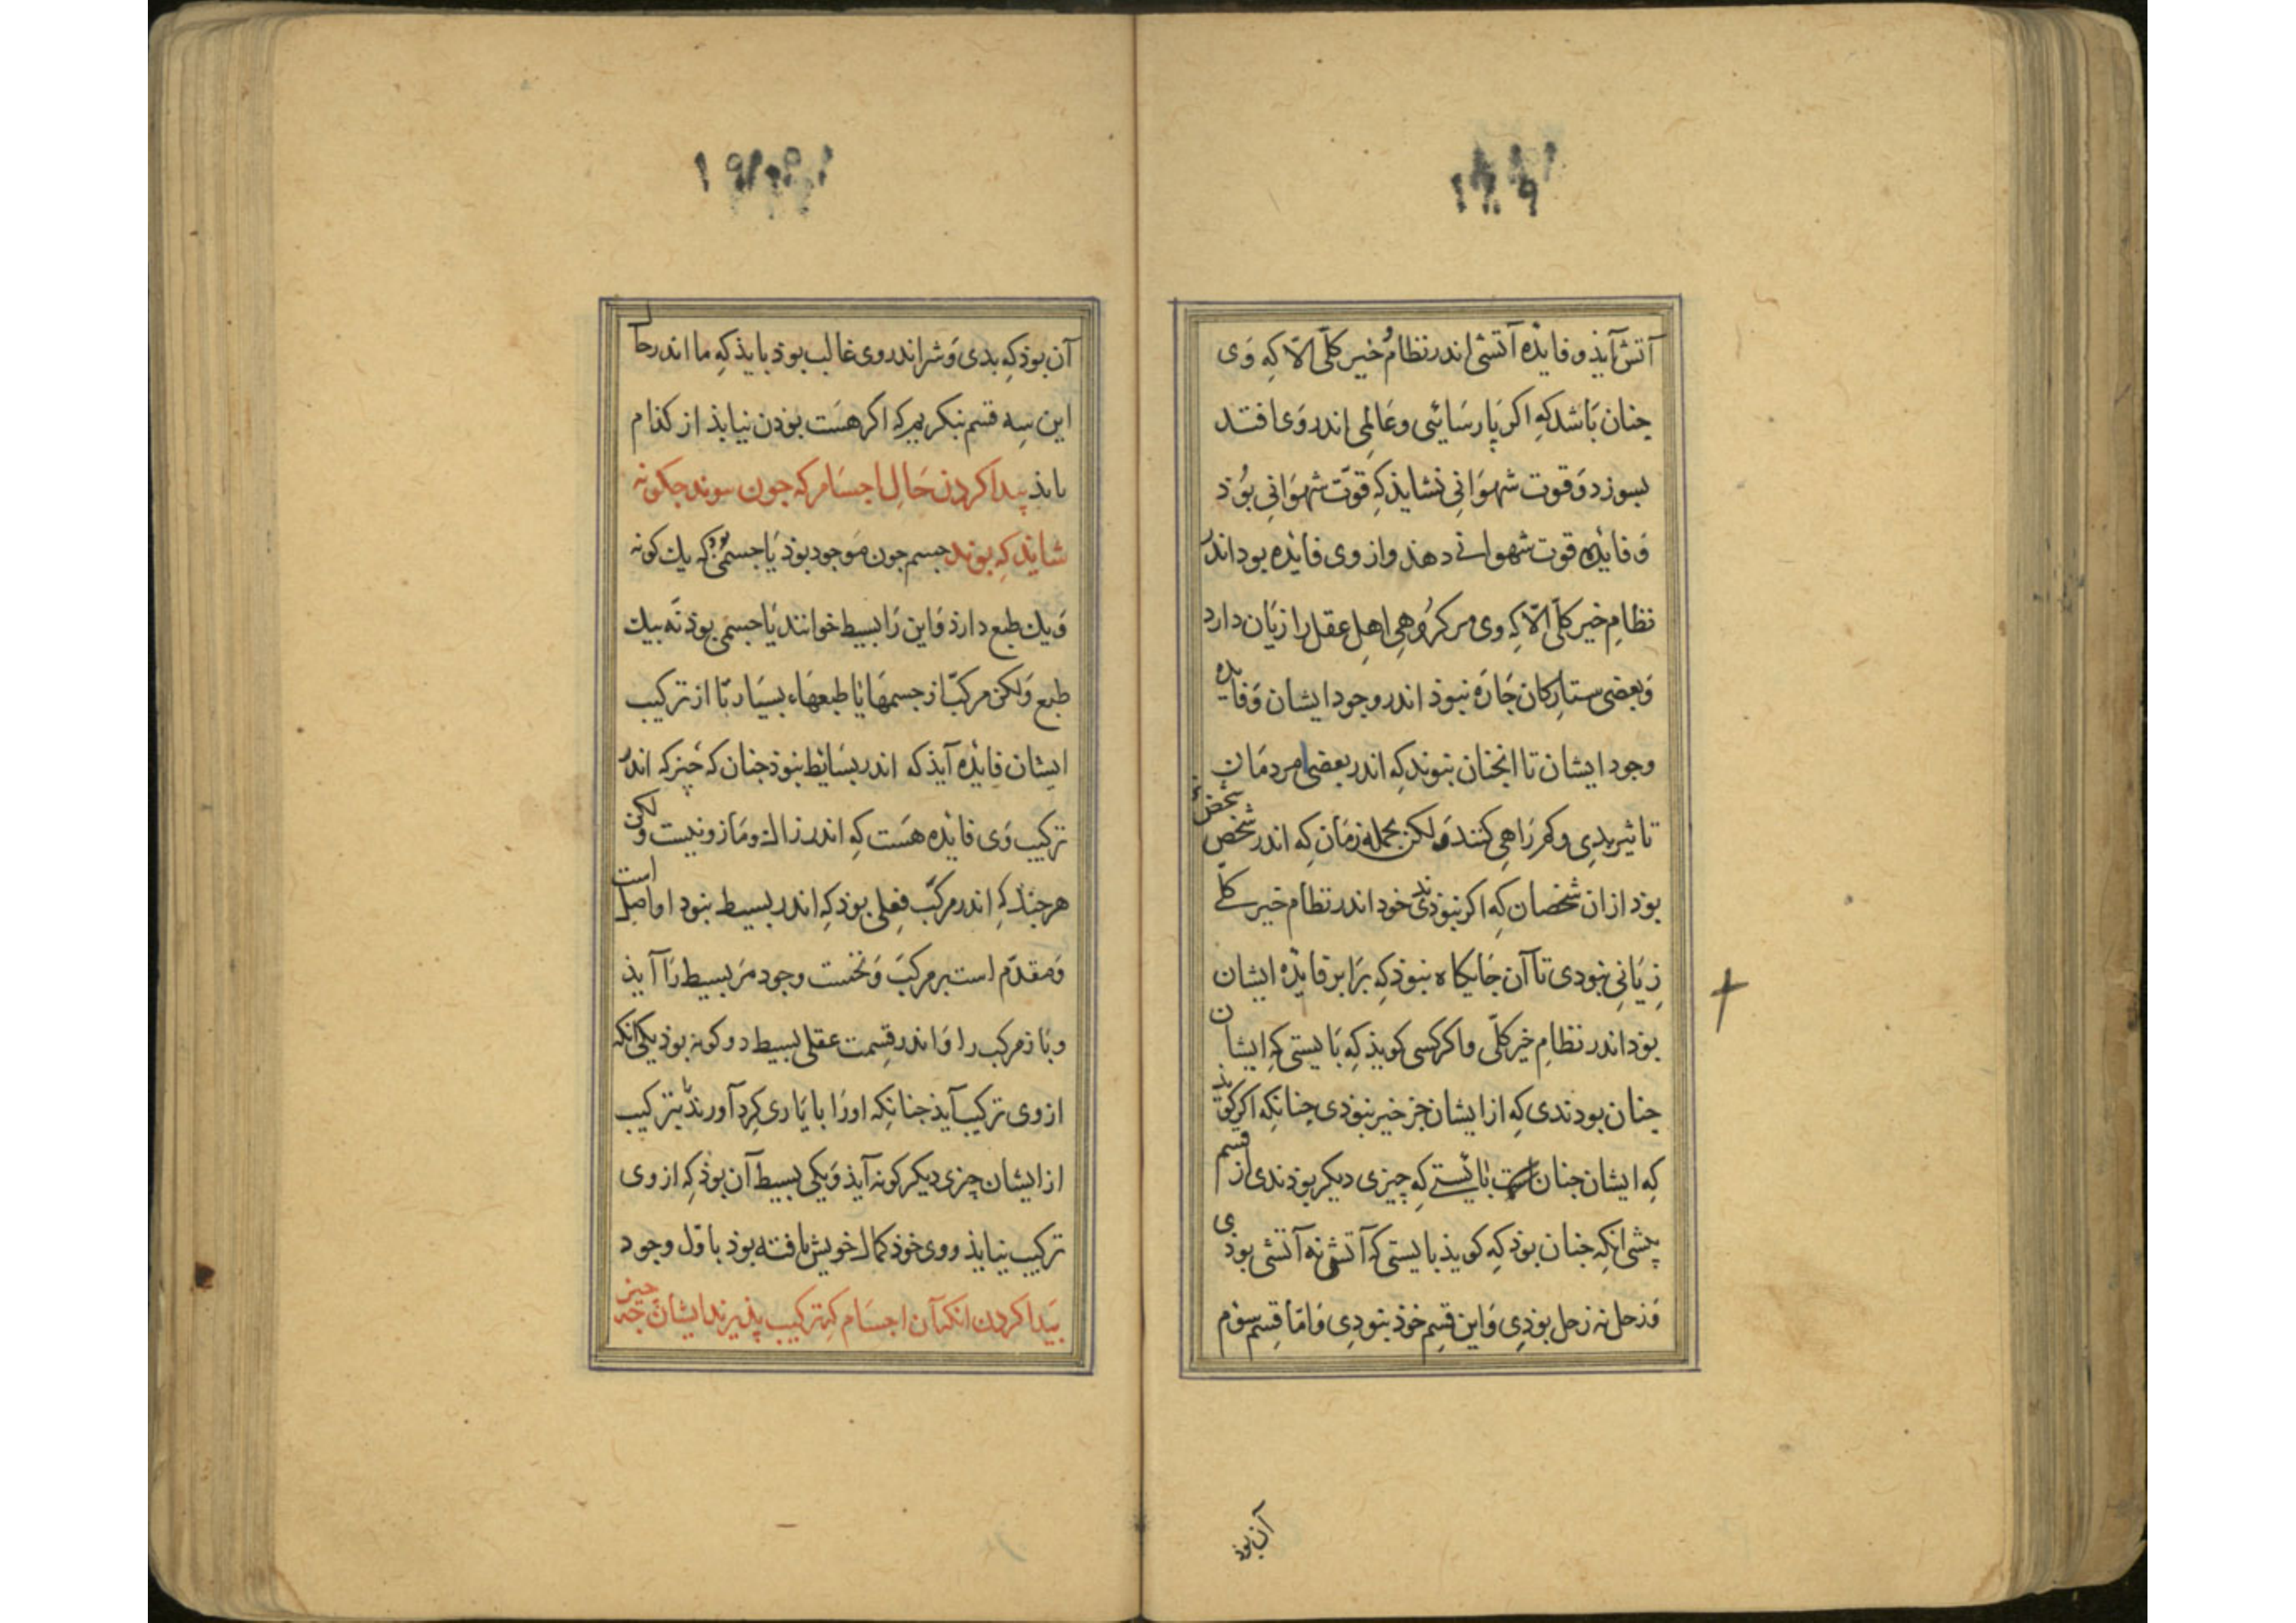 آتش آیذ و فایده آتشی اندر نظام خیر کلّی الّا کِه وَی
چنان بَاشد کِه اکر پَارسَائی و عَالِمی اندر وَی افتد
بسوزد وَ قوت شهوَانی نشایذ کِه قوّت شهوَانی بوُذ
وَ فایده قوت شهوانی دهند و از وی فائده بوذ اندر
نظامِ خیر کلّی الّا کِه وی مر کرُوهِی اهلِ عقل را زیَان دارد
وَ بعضی ستارکان چَارَه نبوذ اندر وجود ایشان وَ فایده
وجود ایشان تا انچنان نبوند کِه اندر بعضی مردمَان
تاثیر بدی و کمرَاهِی کنند وَ لکن بجمله زمَان کِه اندر شخص شخص
بوَد از ان شخصان کِه اکر نبوذندی خود اندر نظام خیر کلّی
زِیَانی نبودی تا آن جَایکاه نبوذ کِه برَابر فایده ایشان
بوَد اندر نظامِ خیر کلّی و اکر کسی کویذ کِه بَایستی کِه ایشان
چنان بودندی کِه از ایشان جز خیر نبوَدی چنانکِه اکر کویذ
کِه ایشان چنان بایستی کِه چیزی دیکر بوذندی از قسم
پیشی انکِه چنان بوَد کِه کویذ بایستی کِه آتش نه آتشی بودی
وَ زحل نه زحل بوذی وَ این قسِم خوذ نبودی وَ امّا قسِم سوُم
آن بوذ
آن بوذ کِه بدی وَ شر اندر وی غالب بوذ بایذ کِه ما اندر حال
این سِه قسم بنکریم کِه اکر هسَت بوَدن نیایذ از کذام
بایذ پیدا کردن حَالِ اجسَام کِه چون بوند چکونه
شایند کِه بوند جسم چون مَوجود بوَذ یَا جسمی بوَد کِه یك کونه
وَ یك طبع دارذ وَ این رَا بسیط خوانند یَا جسمی بوَد نَه بیك
طبع وَ لکن مرکبّ از جسمهَا با طبعهَاء بسیَار تا از ترکیب
ایشان فایده آیذ کِه اندر بسَائط نبوَد چنان کِه خَبز کِه اندر
ترکیب وَی فائده هسَت کِه اندر زاك و مَازو نیست و لکن
هر چند کِه اندر مرکّب فعِلی بوَد کِه اندر بسیط نبود او اصل است
وَ مقدّم است بر مرکّب وَ نخست وجود مَر بسیط رَا آیذ
و بَاز مرکب را وَ اندر قسِمت عقلی بسیط دو کونه بوذ یکی انکه
از وی ترکیب آیذ چنانکِه اورَا با یَاری کِرد آورند تا بترکیب
از ایشان چیزی دیکر کونه آیذ وَ یکی بسیط آن بوذ کِه از وی
ترکیب نیایذ و وی خوذ کمال خویش یافته بوذ باوّل وجود
پَیدا کردن انکِ آن اجسَام کِه ترکیب پذیرند ایشان چه چیز